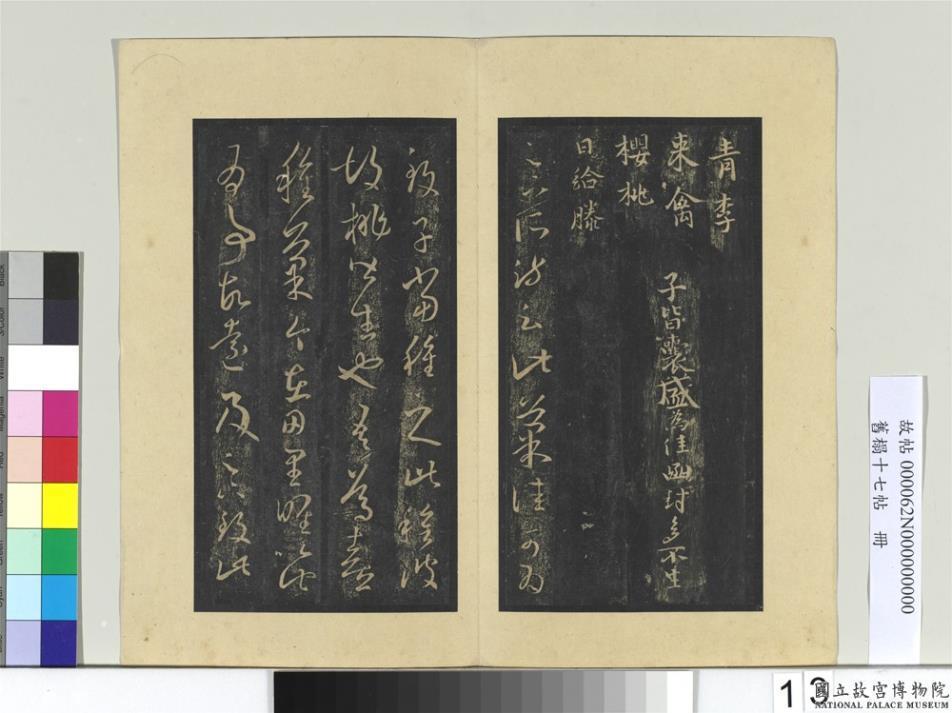 青李
來禽 子皆囊盛為佳函封多不生
櫻桃
日給滕
足下所疏云此菓佳可為
致子當種之此種彼
胡桃皆生也吾篤喜
種菓今在田里唯以此
為事故遠及足下致此
故帖 000062N000000000
舊搨十七帖 冊
13
國立故宮博物院
NATIONAL PALACE MUSEUM